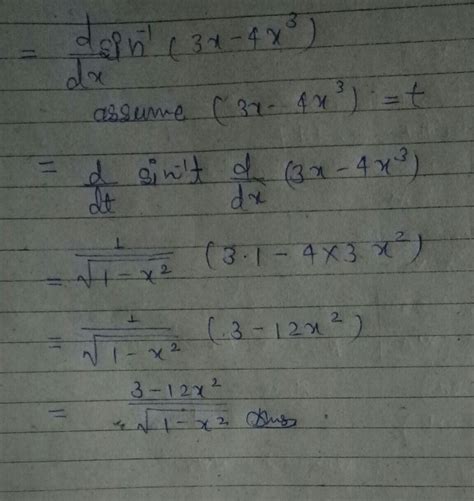 = d/dx sin⁻¹ (3x - 4x³)
assume (3x - 4x³) = t
= d/dt sin⁻¹t d/dx (3x - 4x³)
= 1/√(1 - x²) (3·1 - 4×3 x²)
= 1/√(1 - x²) (3 - 12x²)
= (3 - 12x²)/√(1 - x²) Ans